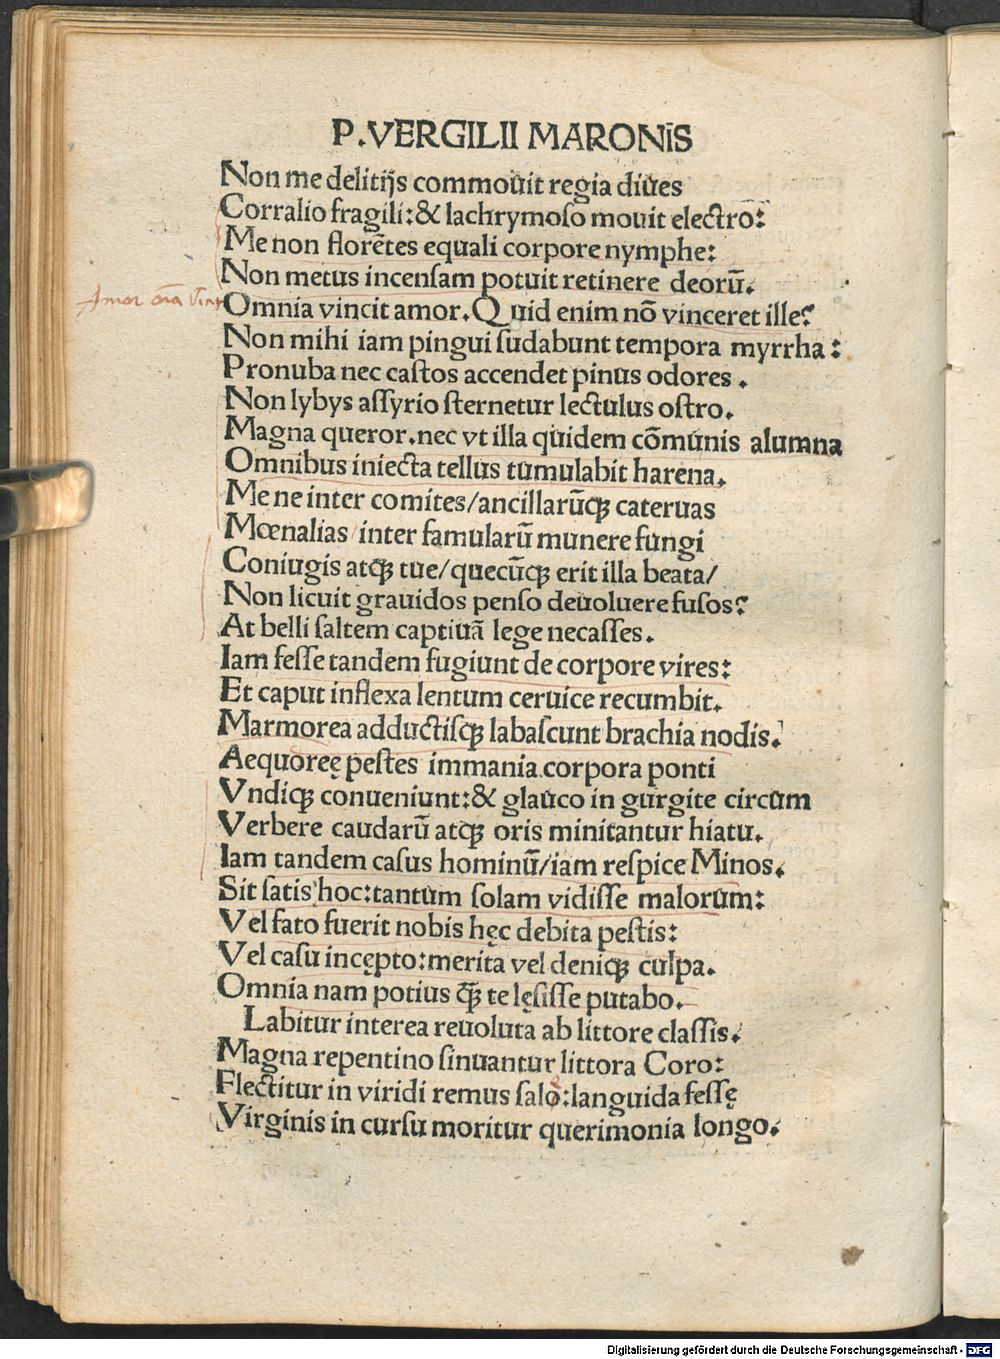 P.VERGILII MARONIS
Non me delitijs commouit regia diues
Corralio fragili:& lachrymoso mouit electro:
Me non florētes equali corpore nymphe:
Non metus incensam potuit retinere deorū.
Amor oīa Vinc
Omnia vincit amor.Quid enim nō vinceret ille?
Non mihi iam pingui sudabunt tempora myrrha:
Pronuba nec castos accendet pinus odores.
Non lybys assyrio sternetur lectulus ostro.
Magna queror.nec vt illa quidem cōmunis alumna
Omnibus iniecta tellus tumulabit harena.
Me ne inter comites/ancillarūqꝫ cateruas
Mœnalias inter famularū munere fungi
Coniugis atqꝫ tue/quecūqꝫ erit illa beata/
Non licuit grauidos penso deuoluere fusos?
At belli saltem captiuā lege necasses.
Iam fesse tandem fugiunt de corpore vires:
Et caput inflexa lentum ceruice recumbit.
Marmorea adductisqꝫ labascunt brachia nodis.
Aequoreę pestes immania corpora ponti
Vndiqꝫ conueniunt:& glauco in gurgite circum
Verbere caudarū atqꝫ oris minitantur hiatu.
Iam tandem casus hominū/iam respice Minos.
Sit satis hoc:tantum solam vidisse malorum:
Vel fato fuerit nobis hęc debita pestis:
Vel casu incępto:merita vel deniqꝫ culpa.
Omnia nam potius qꝫ̄ te lęsisse putabo.
Labitur interea reuoluta ab littore classis.
Magna repentino sinuantur littora Coro:
Flectitur in viridi remus salo:languida fessę
Virginis in cursu moritur querimonia longo.
Digitalisierung gefördert durch die Deutsche Forschungsgemeinschaft - DFG